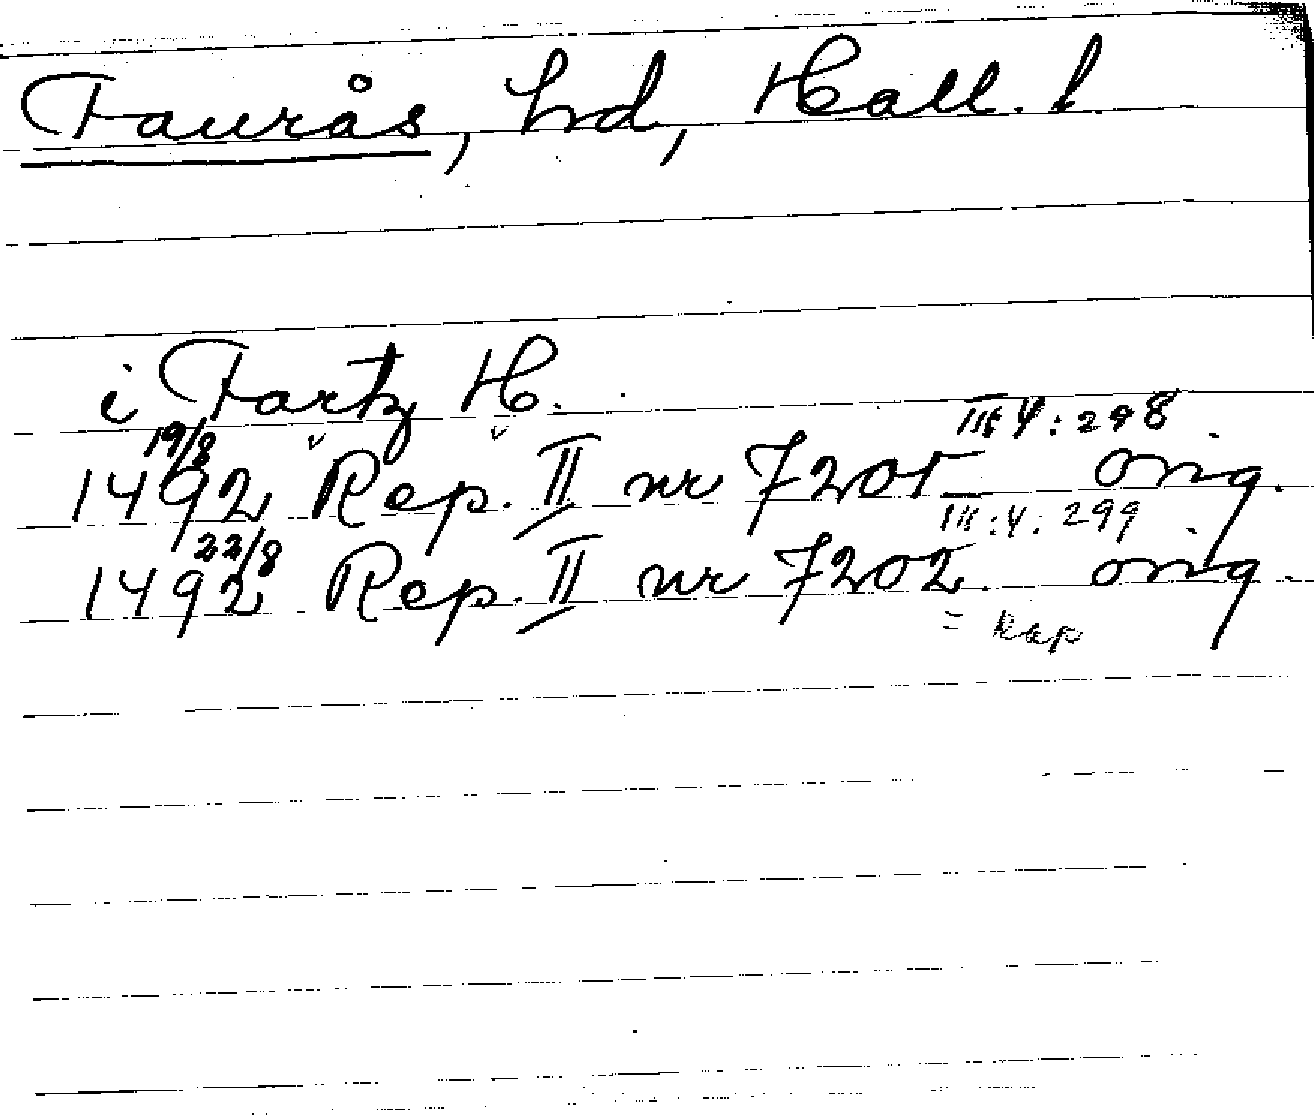 Faurås, hd, Hall. l
i Fartz H.
19/8 III:4:298
1492 Rep. II nr 7201 orig.
22/8 III:4:299
1492 Rep. II nr 7202 orig
= Rep